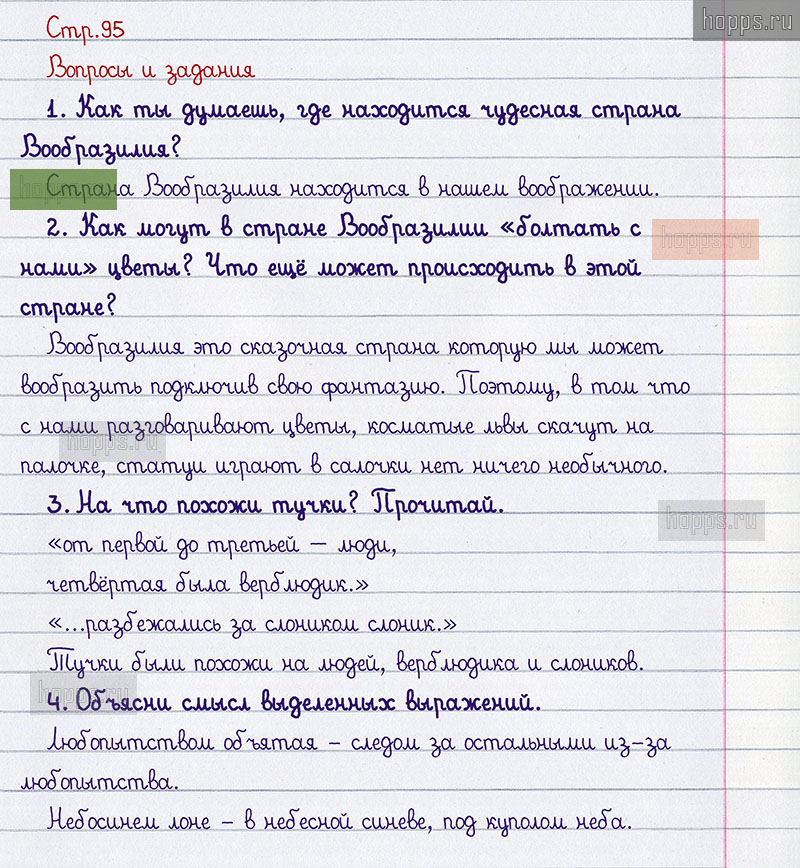 hopps.ru
Стр.95
Вопросы и задания
1. Как ты думаешь, где находится чудесная страна
Вообразилия?
Страна Вообразилия находится в нашем воображении.
hopps.ru
2. Как могут в стране Вообразилии «болтать с
hopps.ru
нами» цветы? Что ещё может происходить в этой
стране?
Вообразилия это сказочная страна которую мы может
вообразить подключив свою фантазию. Поэтому, в том что
с нами разговаривают цветы, косматые львы скачут на
hopps.ru
палочке, статуи играют в салочки нет ничего необычного.
3. На что похожи тучки? Прочитай.
hopps.ru
«от первой до третьей – люди,
четвёртая была верблюдик.»
«...разбежались за слоником слоник.»
Тучки были похожи на людей, верблюдика и слоников.
hopps.ru
4. Объясни смысл выделенных выражений.
Любопытством объятая – следом за остальными из-за
любопытства.
Небосинем лоне – в небесной синеве, под куполом неба.